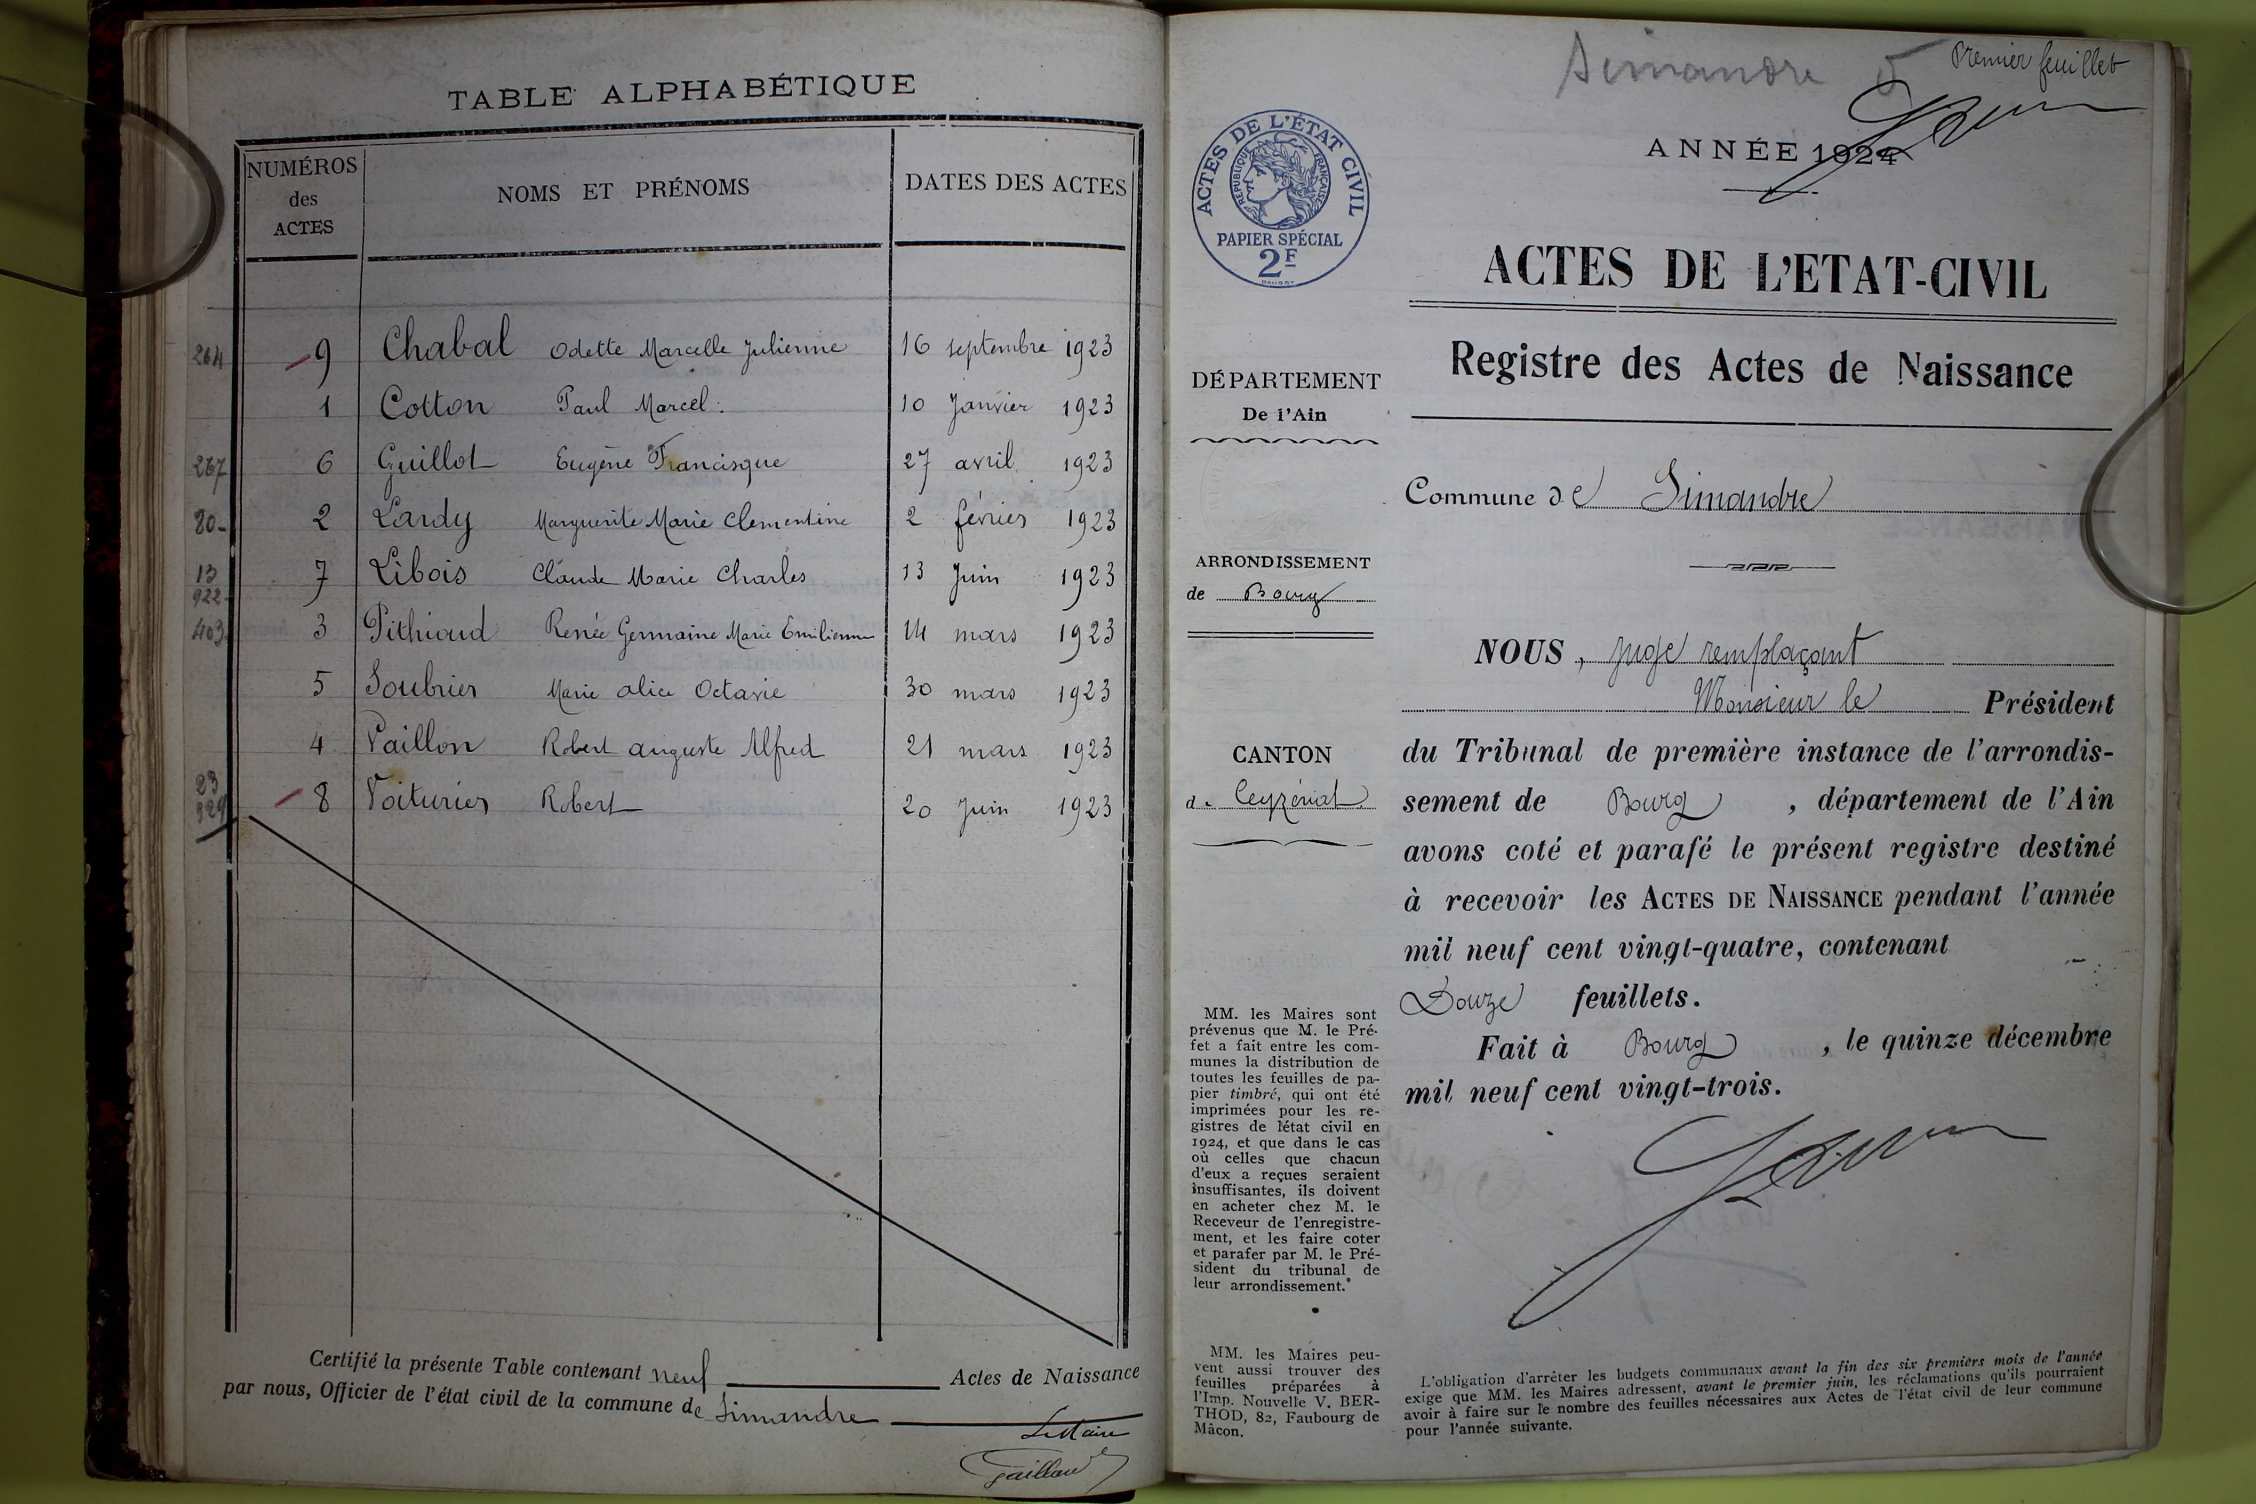 TABLE ALPHABÉTIQUE
NUMÉROS des ACTES
NOMS ET PRÉNOMS
DATES DES ACTES
264 9 Chabal Odette Marcelle Julienne 16 septembre 1923
1 Cotton Paul Marcel. 10 Janvier 1923
267 6 Guillot Eugène Francisque 27 avril 1923
80 2 Lardy Marguerite Marie Clementine 2 février 1923
13 922 7 Libois Claude Marie Charles 13 Juin 1923
403 3 Pithioud Renée Germaine Marie Emilienne 14 mars 1923
5 Soubrier Marie alice Octavie 30 mars 1923
4 Vaillon Robert auguste Alfred 21 mars 1923
23 329 8 Voiturier Robert 20 Juin 1923
Certifié la présente Table contenant neuf Actes de Naissance
par nous, Officier de l'état civil de la commune de Simandre
Le Maire
Simandre 5
Premier feuillet
ANNÉE 1924
ACTES DE L'ÉTAT CIVIL
RÉPUBLIQUE FRANÇAISE
PAPIER SPÉCIAL
2F
ACTES DE L'ETAT-CIVIL
Registre des Actes de Naissance
DÉPARTEMENT
De l'Ain
Commune de Simandre
ARRONDISSEMENT
de Bourg
CANTON
de Ceyzériat
NOUS, juge remplaçant
Monsieur le Président
du Tribunal de première instance de l'arrondis-
sement de Bourg, département de l'Ain
avons coté et parafé le présent registre destiné
à recevoir les ACTES DE NAISSANCE pendant l'année
mil neuf cent vingt-quatre, contenant
Douze feuillets.
Fait à Bourg, le quinze décembre
mil neuf cent vingt-trois.
MM. les Maires sont
prévenus que M. le Pré-
fet a fait entre les com-
munes la distribution de
toutes les feuilles de pa-
pier timbré, qui ont été
imprimées pour les re-
gistres de l'état civil en
1924, et que dans le cas
où celles que chacun
d'eux a reçues seraient
insuffisantes, ils doivent
en acheter chez M. le
Receveur de l'enregistre-
ment, et les faire coter
et parafer par M. le Pré-
sident du tribunal de
leur arrondissement.
MM. les Maires peu-
vent aussi trouver des
feuilles préparées à
l'Imp. Nouvelle V. BER-
THOD, 82, Faubourg de
Mâcon.
L'obligation d'arrêter les budgets communaux avant la fin des six premiers mois de l'année
exige que MM. les Maires adressent, avant le premier juin, les réclamations qu'ils pourraient
avoir à faire sur le nombre des feuilles nécessaires aux Actes de l'état civil de leur commune
pour l'année suivante.